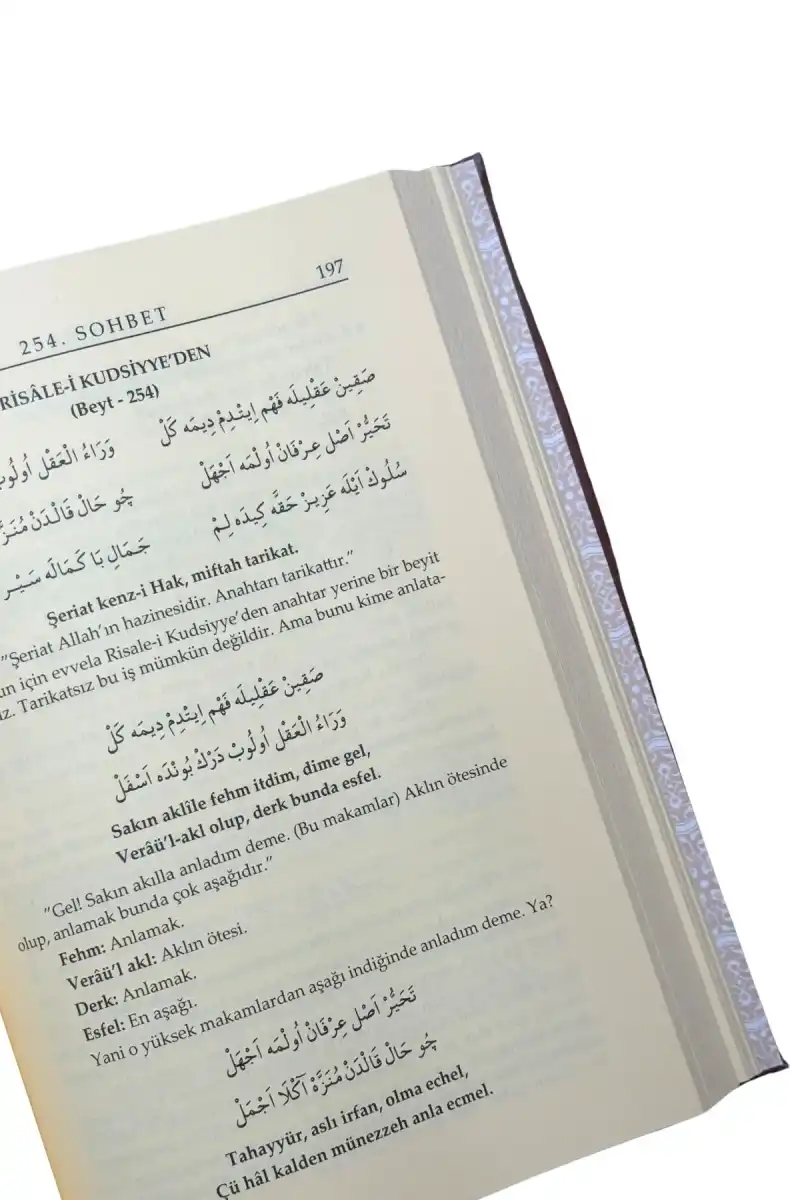 197
254. SOHBET
RİSÂLE-İ KUDSİYYE'DEN
(Beyt - 254)
صَقِينْ عَقْلِيلَه فَهْم اِيتْدِمْ دِيمَه كَلْ وَرَاءُ الْعَقْل
تَحَيُّرْ اَصْل عِرْفَانْ اُولْمَه اَجْهَلْ چُو حَال قَالْدَنْ
سُلُوكْ اَيْلَه عَزِيزْ حَقَّه كِيدَه لِمْ جَمَالِ بَا كَمَالَه سَيْر
Şeriat kenz-i Hak, miftah tarikat.
"Şeriat Allah'ın hazinesidir. Anahtarı tarikattır."
için evvela Risale-i Kudsiyye'den anahtar yerine bir beyit
Tarikatsız bu iş mümkün değildir. Ama bunu kime anlata-
صَقِينْ عَقْلِيلَه فَهْم اِيتْدِمْ دِيمَه كَلْ
وَرَاءُ الْعَقْل اُولُوبْ دَرْكْ بُونْدَه اَسْفَلْ
Sakın aklîle fehm itdim, dime gel,
Verâü'l-akl olup, derk bunda esfel.
"Gel! Sakın akılla anladım deme. (Bu makamlar) Aklın ötesinde
olup, anlamak bunda çok aşağıdır."
Fehm: Anlamak.
Verâü'l akl: Aklın ötesi.
Derk: Anlamak.
Esfel: En aşağı.
Yani o yüksek makamlardan aşağı indiğinde anladım deme. Ya?
تَحَيُّرْ اَصْل عِرْفَانْ اُولْمَه اَجْهَلْ
چُو حَال قَالْدَنْ مُنَزَّهْ آكْلَا اَجْمَلْ
Tahayyür, aslı irfan, olma echel,
Çü hâl kalden münezzeh anla ecmel.